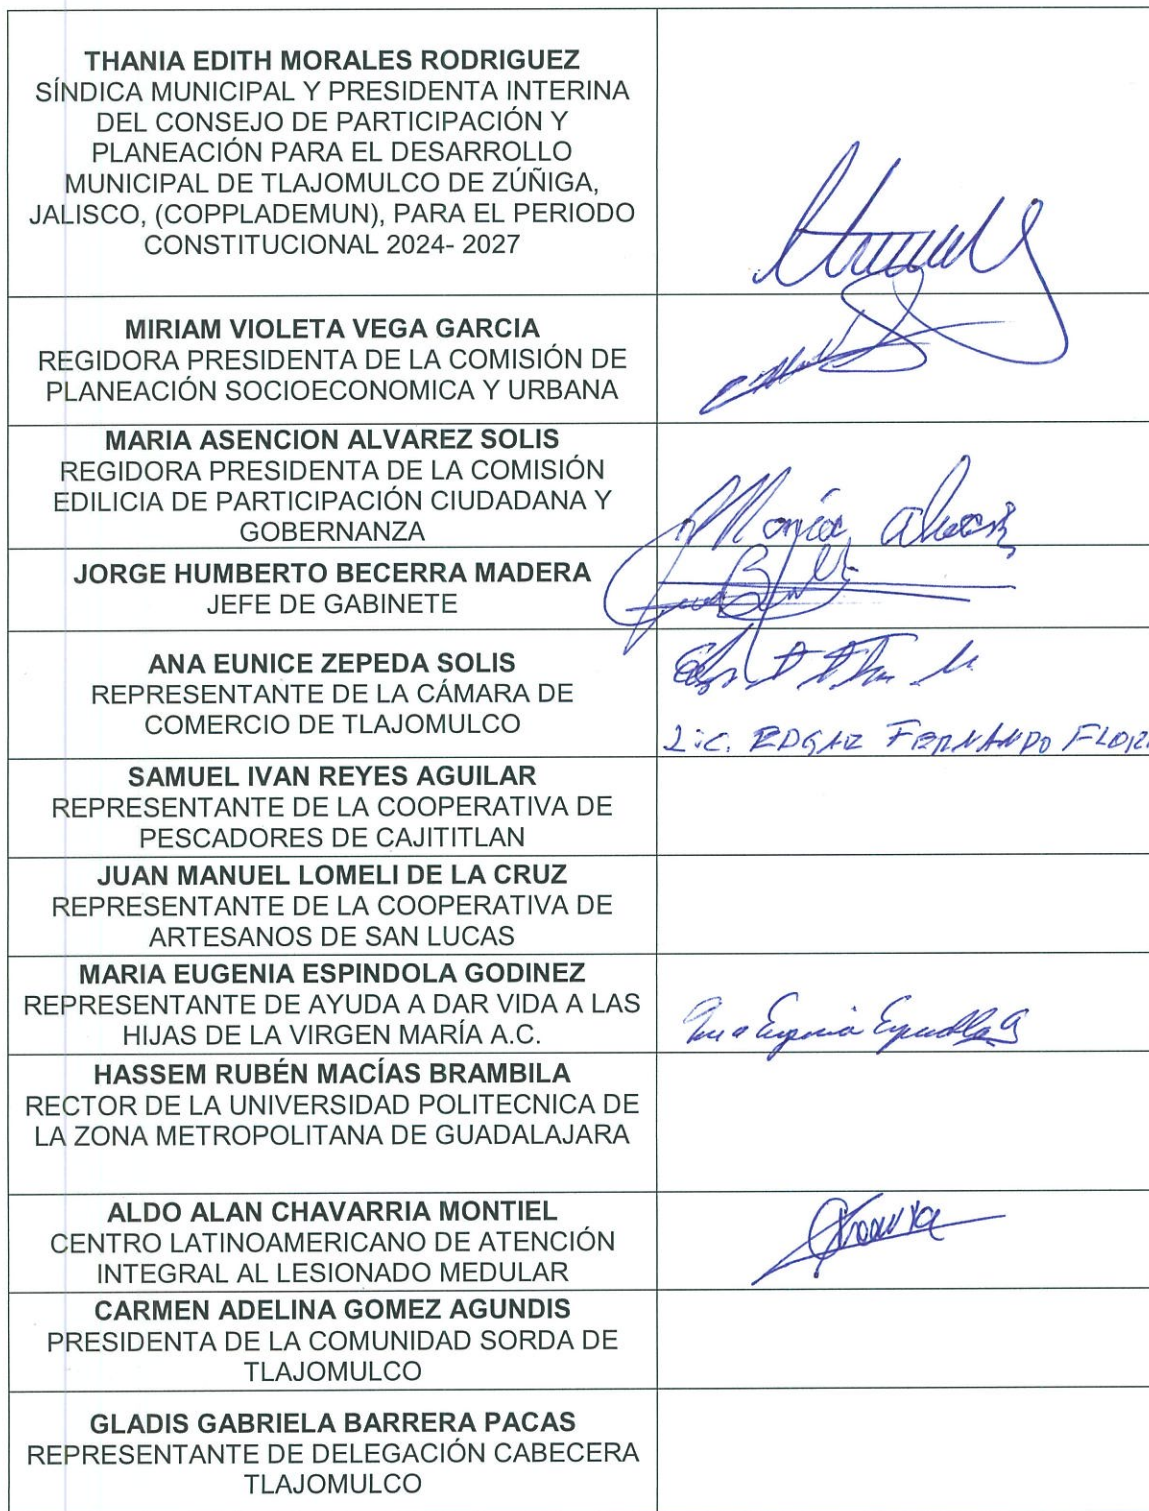 THANIA EDITH MORALES RODRIGUEZ
SÍNDICA MUNICIPAL Y PRESIDENTA INTERINA
DEL CONSEJO DE PARTICIPACIÓN Y
PLANEACIÓN PARA EL DESARROLLO
MUNICIPAL DE TLAJOMULCO DE ZÚÑIGA,
JALISCO, (COPPLADEMUN), PARA EL PERIODO
CONSTITUCIONAL 2024- 2027
MIRIAM VIOLETA VEGA GARCIA
REGIDORA PRESIDENTA DE LA COMISIÓN DE
PLANEACIÓN SOCIOECONOMICA Y URBANA
MARIA ASENCION ALVAREZ SOLIS
REGIDORA PRESIDENTA DE LA COMISIÓN
EDILICIA DE PARTICIPACIÓN CIUDADANA Y
GOBERNANZA
JORGE HUMBERTO BECERRA MADERA
JEFE DE GABINETE
ANA EUNICE ZEPEDA SOLIS
REPRESENTANTE DE LA CÁMARA DE
COMERCIO DE TLAJOMULCO
Lic. EDGAR FERNANDO FLOR
SAMUEL IVAN REYES AGUILAR
REPRESENTANTE DE LA COOPERATIVA DE
PESCADORES DE CAJITITLAN
JUAN MANUEL LOMELI DE LA CRUZ
REPRESENTANTE DE LA COOPERATIVA DE
ARTESANOS DE SAN LUCAS
MARIA EUGENIA ESPINDOLA GODINEZ
REPRESENTANTE DE AYUDA A DAR VIDA A LAS
HIJAS DE LA VIRGEN MARÍA A.C.
HASSEM RUBÉN MACÍAS BRAMBILA
RECTOR DE LA UNIVERSIDAD POLITECNICA DE
LA ZONA METROPOLITANA DE GUADALAJARA
ALDO ALAN CHAVARRIA MONTIEL
CENTRO LATINOAMERICANO DE ATENCIÓN
INTEGRAL AL LESIONADO MEDULAR
CARMEN ADELINA GOMEZ AGUNDIS
PRESIDENTA DE LA COMUNIDAD SORDA DE
TLAJOMULCO
GLADIS GABRIELA BARRERA PACAS
REPRESENTANTE DE DELEGACIÓN CABECERA
TLAJOMULCO